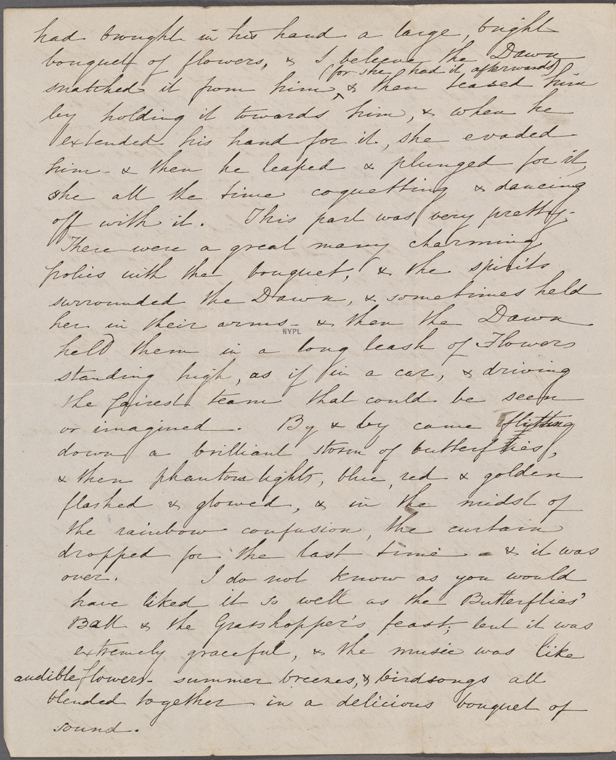 had brought in his hand a large, bright
bouquet of flowers, & I believe the Dawn
(for she had it afterwards)
snatched it from him, & then teased him
by holding it towards him, & when he
extended his hand for it, she evaded
him - & then he leaped & plunged for it,
she all the time coquetting & dancing
off with it. This part was very pretty.
There were a great many charming
frolics with the bouquet, & the spirits
surrounded the Dawn, & sometimes held
her in their arms - & then the Dawn
NYPL
held them in a long leash of Flowers
standing high, as if in a car, & driving
the fairest team that could be seen
or imagined. By & by came flitting
down a brilliant storm of butterflies,
& then phantom lights, blue, red & golden
flashed & glowed, & in the midst of
the rainbow confusion, the curtain
dropped for the last time - & it was
over. I do not know as you would
have liked it so well as the Butterflies'
Ball & the Grasshopper's feast, but it was
extremely graceful, & the music was like
audible flowers - summer breezes, & birdsongs all
blended together in a delicious bouquet of
sound.